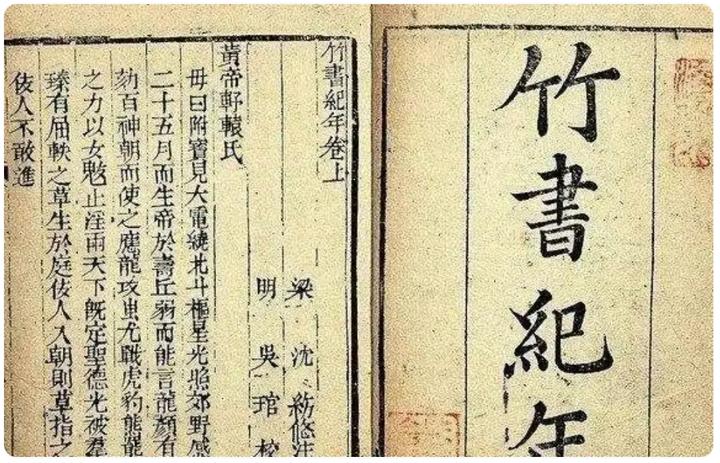 竹書紀年
竹書紀年卷上
梁 沈 約 悠注
明 吳 琯 校
黃帝軒轅氏
毋曰附寶見大電繞北斗樞星光照郊野感
二十五月而生帝於壽丘弱而能言龍顏有
劾百神朝而使之應龍攻蚩尤戰虎豹熊羆
之力以女魃止淫雨天下既定聖德光被羣
臻有屈軼之草生於庭佞人入朝則草指之
佞人不敢進